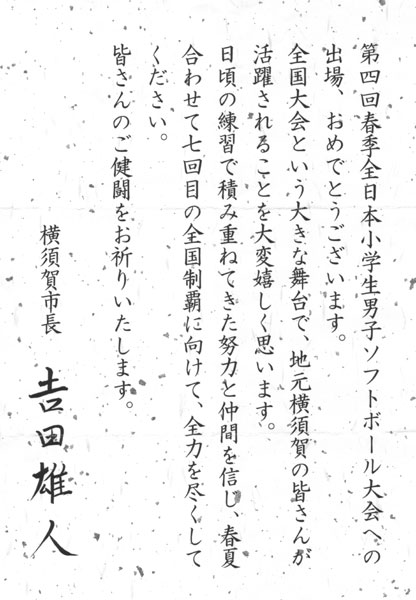 第四回春季全日本小学生男子ソフトボール大会への
出場、おめでとうございます。
全国大会という大きな舞台で、地元横須賀の皆さんが
活躍されることを大変嬉しく思います。
日頃の練習で積み重ねてきた努力と仲間を信じ、春夏
合わせて七回目の全国制覇に向けて、全力を尽くして
ください。
皆さんのご健闘をお祈りいたします。
横須賀市長
吉田雄人